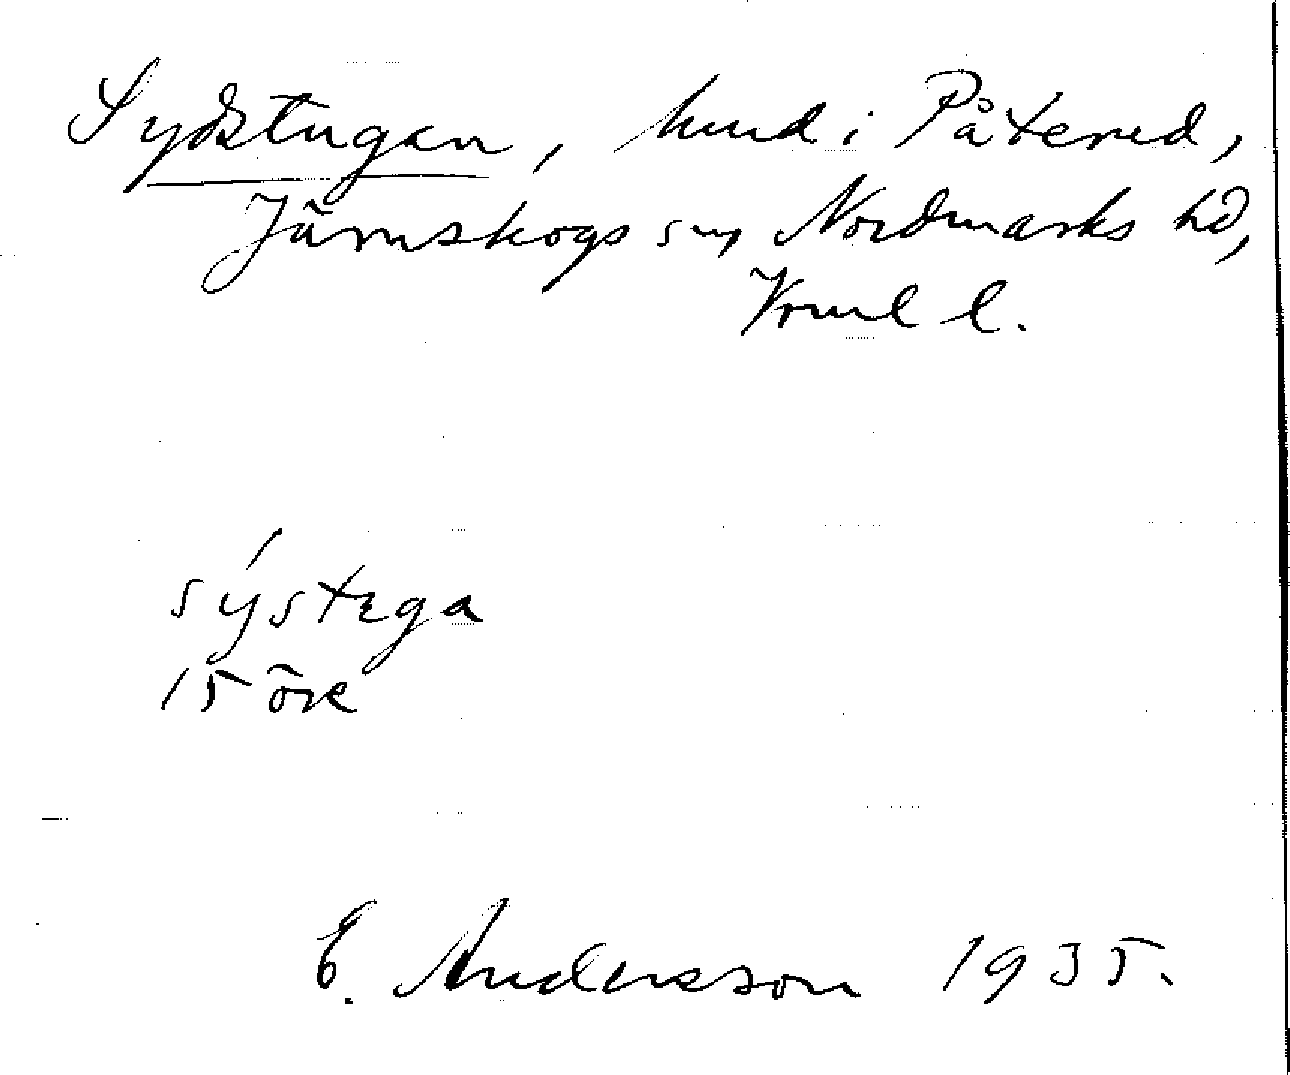 Sydstugan, hmd i Påtered,
Järnskogs sn, Nordmarks hd,
Vrml l.
sýstega
15 öre
E. Andersson 1935.